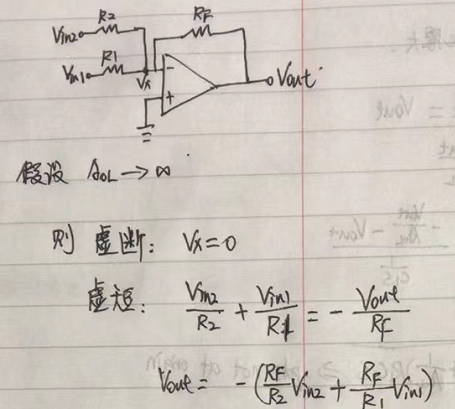 Vin2 R2 RF
Vin1 R1 Vx - + Vout
假设 AOL → ∞
则 虚断: Vx=0
虚短: Vin2/R2 + Vin1/R1 = - Vout/RF
Vout = - (RF/R2 Vin2 + RF/R1 Vin1)